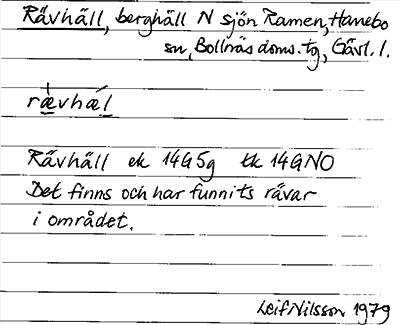 Rävhäll, berghäll N sjön Ramen, Hanebo
sn, Bollnäs doms. tg, Gävl. l.
rævhæl
Rävhäll ek 14G5g tk 14GNO
Det finns och har funnits rävar
i området.
Leif Nilsson 1979